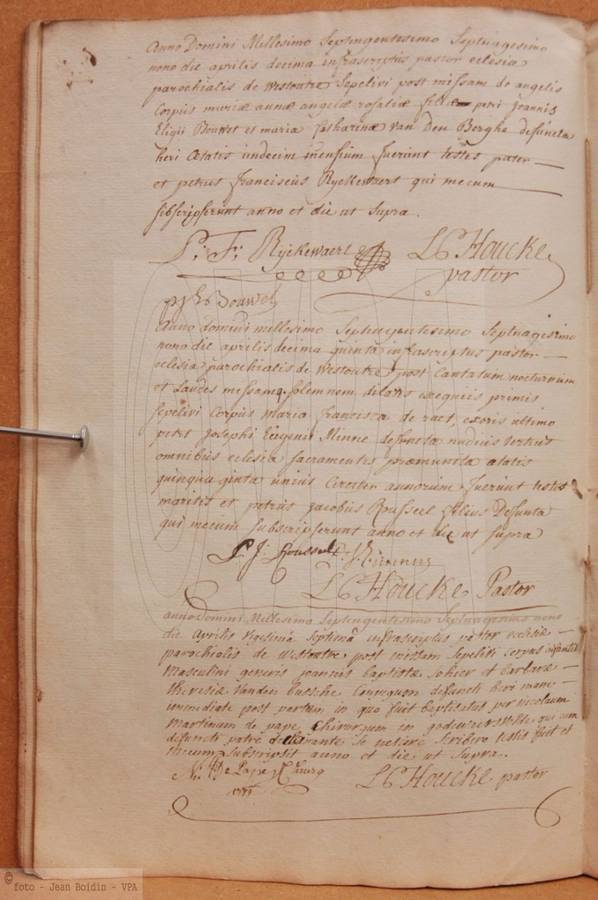 Anno Domini Millesimo Septingentesimo Septuagesimo
nono die aprilis decima infrascriptus pastor eclesia
parochialis de Westoutre Sepelivi post missam de angelis
Corpus mariæ annæ angelæ rosaliæ filiæ petri joannis
Eligii Bouwet et maria Catharinæ van Den Berghe defuncta
heri Ætatis undecim mensium fuerunt testes pater
et petrus franciscus Ryckewaert qui mecum
subscripserunt anno et die ut supra.
P: Fr: Ryckewaert LC Houcke
pastor
pjE Bouwet
Anno domini millesimo Septingentesimo Septuagesimo
nono die aprilis decima quinta infrascriptus pastor
eclesia parochialis de Westoutre post Cantatum nocturnum
et Laudes missamq. solemnem dilatis exequiis primis
sepelivi corpus Maria francisca de raet, exoris ultimo
petri Josephi Eugenii Minne defuncta nudius tertius
omnibus eclesia sacramentis præmunita ætatis
quinquaginta unius Circiter annorum fuerunt testes
maritus et petrus jacobus Roussel filius Defuncta
qui mecum subscripserunt anno et die ut supra
P. J. Roussel
LC Houcke Pastor
anno Domini Millesimo Septingentesimo Septuagesimo nono
die Aprilis vigesima septima infrascriptus pastor ecclesiæ
parochialis de Westoutre post missam sepelivi corpus infantis
Masculini generis joannis baptistæ sohier et barbaræ
theresiæ vanden bussche Conjugum defuncti heri mane
immediate post partum in quo fuit baptisatus per nicolaum
Martinum de pape Chirurgum in godewaersvelde, qui cum
defuncti patre declarante se nescire scribere testis fuit et
mecum subscripsit anno et die ut supra.
N: M: De Pape Chirurg
LC Houcke pastor
© foto - Jean Boidin - VPA